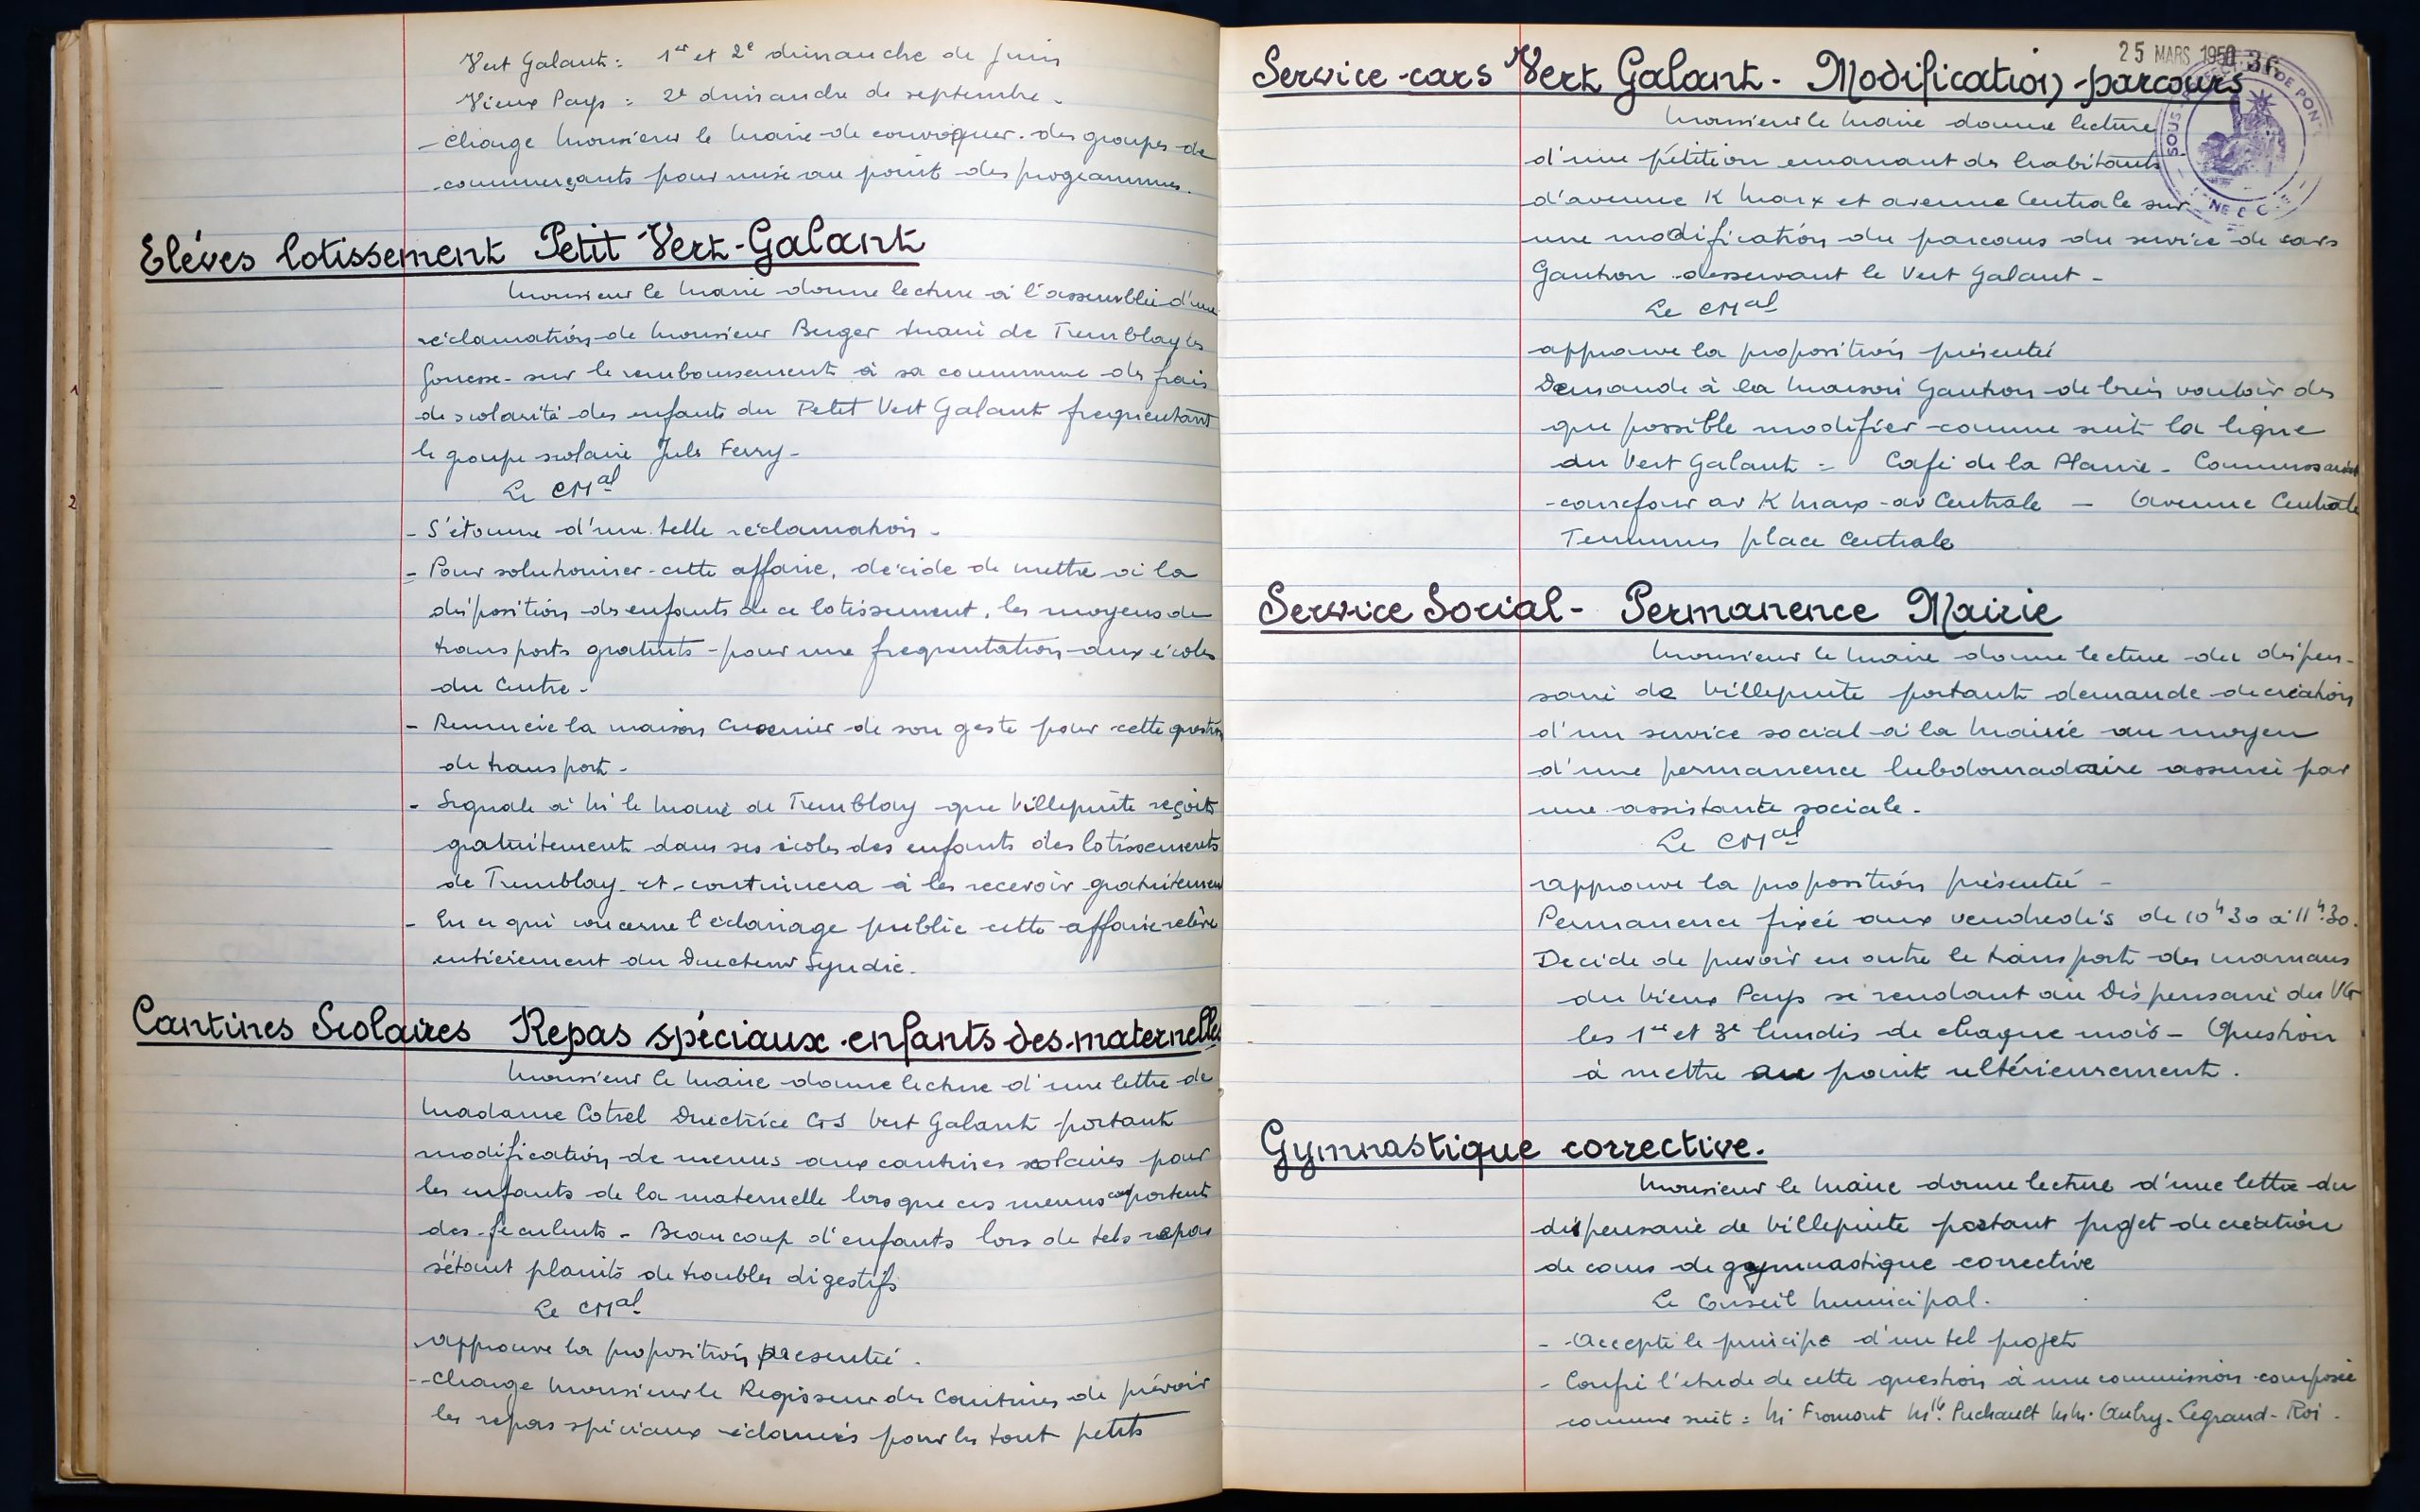 Vert Galant : 1er et 2e dimanche de Juin
Vieux Pays : 2e dimanche de septembre -
- Charge Monsieur le Maire de convoquer des groupes de
commerçants pour mise au point des programmes.
Elèves lotissement Petit Vert-Galant
Monsieur le Maire donne lecture à l'assemblée d'une
réclamation de Monsieur Berger Maire de Tremblay les
Gonesse - sur le remboursement à sa commune des frais
de scolarité des enfants du Petit Vert Galant frequentant
le groupe scolaire Jules Ferry -
Le CMal
- S'étonne d'une telle réclamation -
- Pour solutionner cette affaire, décide de mettre à la
disposition des enfants de ce lotissement, les moyens de
transports gratuits - pour une frequentation aux écoles
du Centre -
- Remercie la maison de son geste pour cette question
de transport -
- Signale à M. le Maire de Tremblay que Villepinte reçoit
gratuitement dans ses écoles des enfants des lotissements
de Tremblay et continuera à les recevoir gratuitement
- En ce qui concerne l'éclairage public cette affaire relève
entièrement du Directeur Syndic.
Cantines Scolaires Repas spéciaux enfants des maternelles
Monsieur le Maire donne lecture d'une lettre de
Madame Cotrel Directrice GS Vert Galant portant
modification de menus aux cantines scolaires pour
les enfants de la maternelle lorsque ces menus comportent
des féculents - Beaucoup d'enfants lors de tels repas
s'étant plaints de troubles digestifs
Le CMal
- Approuve la proposition présentée.
- Charge Monsieur le Régisseur des Cantines de prévoir
les repas spéciaux réclamés pour les tout petits
25 MARS 1950
36
Service cars Vert Galant - Modification parcours
Monsieur le Maire donne lecture
d'une pétition emanant des habitants
d'avenue K Marx et avenue Centrale sur
une modification du parcours du service de cars
Gauthon desservant le Vert Galant -
Le CMal
approuve la proposition présentée
Demande à la Maison Gauthon de bien vouloir dès
que possible modifier comme suit la ligne
du Vert Galant = Café de la Plaine - Commissariat
- carrefour av K Marx - av Centrale - Avenue Centrale
Terminus place Centrale
Service Social - Permanence Mairie
Monsieur le Maire donne lecture du dispen-
saire de Villepinte portant demande de création
d'un service social à la Mairie au moyen
d'une permanence hebdomadaire assurée par
une assistante sociale -
Le CMal
approuve la proposition présentée -
Permanence fixée aux vendredis de 10h30 à 11h30.
Decide de prévoir en outre le transport des mamans
du Vieux Pays se rendant au Dispensaire du VG
les 1er et 3e lundis de chaque mois - Question
à mettre au point ultérieurement.
Gymnastique corrective.
Monsieur le Maire donne lecture d'une lettre du
dispensaire de Villepinte portant projet de création
de cours de gymnastique corrective
Le Conseil Municipal.
- Accepte le principe d'un tel projet
- Confie l'étude de cette question à une commission composée
comme suit : M. Fromont Mlle Puchault MM. Aubry - Legrand - Roi.